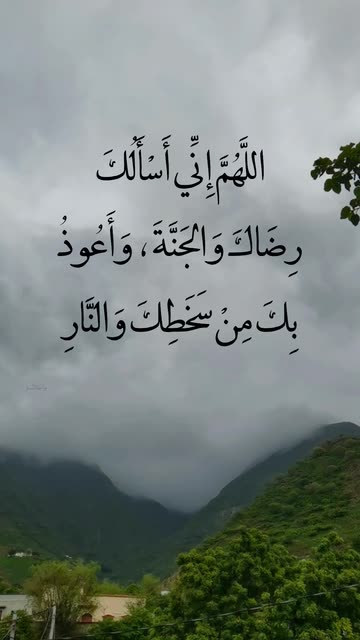 اللَّهُمَّ إِنِّي أَسْأَلُكَ
رِضَاكَ وَالجَنَّةَ، وَأَعُوذُ
بِكَ مِنْ سَخَطِكَ وَالنَّارِ